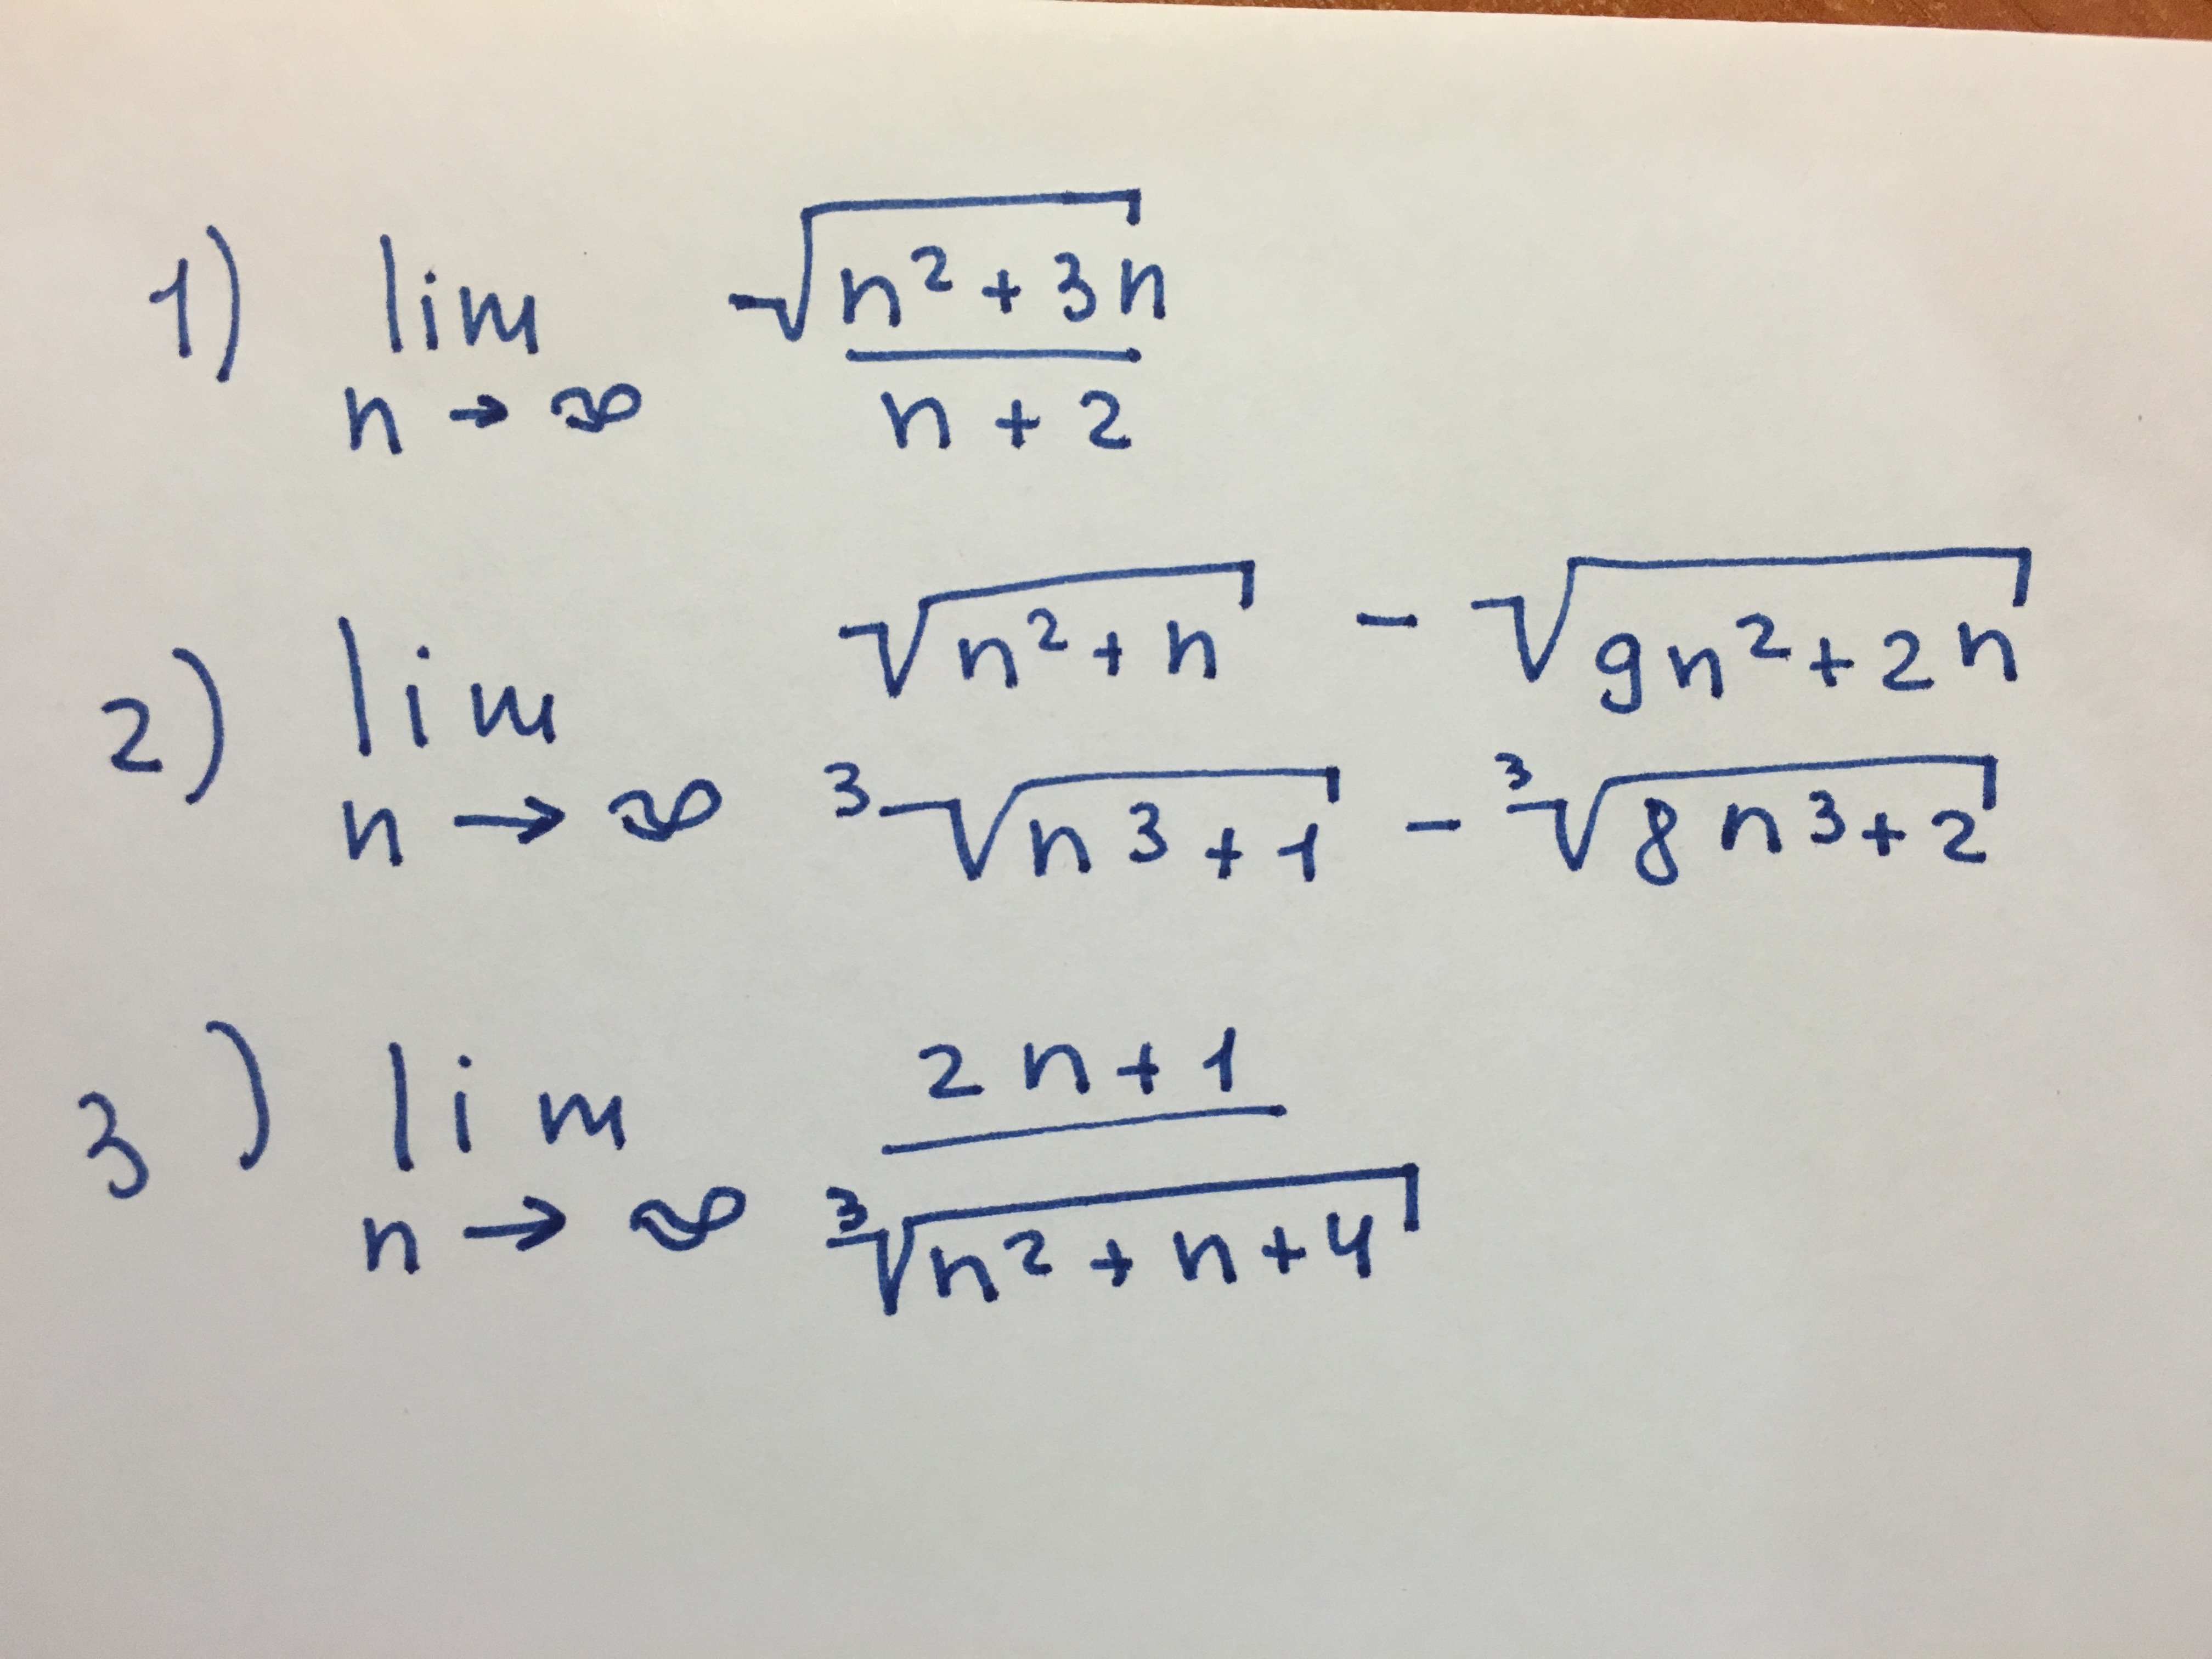 1) lim √(n² + 3n)
n → ∞ n + 2
2) lim √(n² + n) - √(9n² + 2n)
n → ∞ ³√(n3 + 1) - ³√(8n3 + 2)
3) lim 2n + 1
n → ∞ ³√(n² + n + 4)